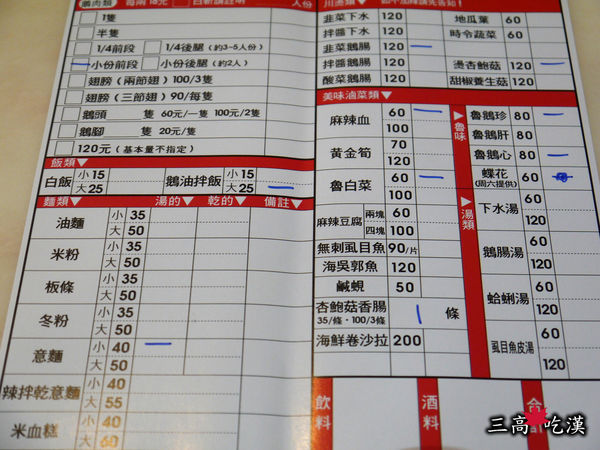 鵝肉類 每兩18元 白斬請註明 人份
1隻
半隻
1/4前段 1/4後腿(約3~5人份)
小份前段 小份後腿(約2人)
翅膀(兩節翅) 100/3隻
翅膀(三節翅) 90/每隻
鵝頭 隻 60元/一隻 100元/2隻
鵝腳 隻 20元/隻
120元(基本量不指定)
飯類▼
白飯 小 15 大 25 鵝油拌飯 小 15 大 25
麵類▼ 湯的▼ 乾的▼ 備註▼
油麵 小 35 大 50
米粉 小 35 大 50
板條 小 35 大 50
冬粉 小 35 大 50
意麵 小 40 大 50
辣拌乾意麵 小 40 大 55
米血糕 小 40 大 60
川燙類▼
韭菜下水 120 地瓜葉 60
拌醬下水 120 時令蔬菜 60
韭菜鵝腸 120
拌醬鵝腸 120 燙杏鮑菇 120
酸菜鵝腸 120 甜椒養生菇 120
美味滷菜類▼
麻辣血 60 100
黃金筍 70 120
魯白菜 60 100
麻辣豆腐 兩塊 60 四塊 100
無刺虱目魚 90/片
海吳郭魚 120
鹹蜆 50
杏鮑菇香腸 35/條・100/3條 1 條
海鮮卷沙拉 200
▶魯味
魯鵝珍 80
魯鵝肝
魯鵝心 80
蝶花(周六提供) 60
▶湯類
下水湯 60 120
鵝腸湯 60 120
蛤蜊湯 60 120
虱目魚皮湯 60 120
飲料
酒料
合計
三高 吃漢